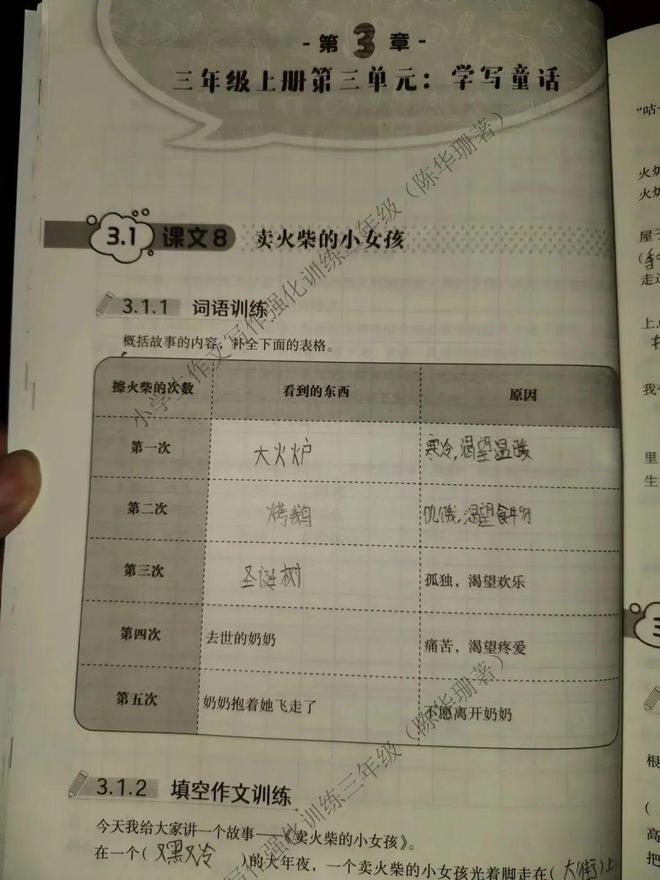 - 第3章 -
三年级上册第三单元：学写童话
3.1 课文8 卖火柴的小女孩
3.1.1 词语训练
概括故事的内容，补全下面的表格。
擦火柴的次数 看到的东西 原因
第一次 大火炉 寒冷，渴望温暖
第二次 烤鹅 饥饿，渴望食物
第三次 圣诞树 孤独，渴望欢乐
第四次 去世的奶奶 痛苦，渴望疼爱
第五次 奶奶抱着她飞走了 不愿离开奶奶
3.1.2 填空作文训练
今天我给大家讲一个故事——《卖火柴的小女孩》。
在一个（又黑又冷）的大年夜，一个卖火柴的小女孩光着脚走在（大街）上
小学生作文写作强化训练三年级（陈华珊著）
写作强化训练三年级（陈华珊著）
"咕
火炉
火炉
屋
走过
上
我
里
生
3
根
（
高
把